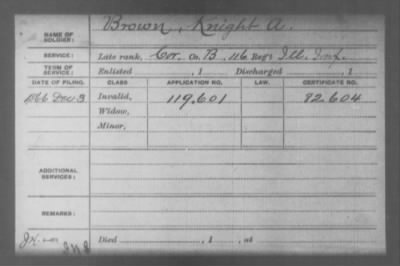 NAME OF SOLDIER: Brown, Knight A.
SERVICE: Late rank, Cor. Co. B, 116 Reg't Ill. Inf.
TERM OF SERVICE: Enlisted , 1 Discharged , 1
DATE OF FILING. CLASS APPLICATION NO. LAW. CERTIFICATE NO.
1866 Dec. 3 Invalid, 119.601 82.604
Widow,
Minor,
ADDITIONAL SERVICES:
REMARKS:
Died , 1 , at